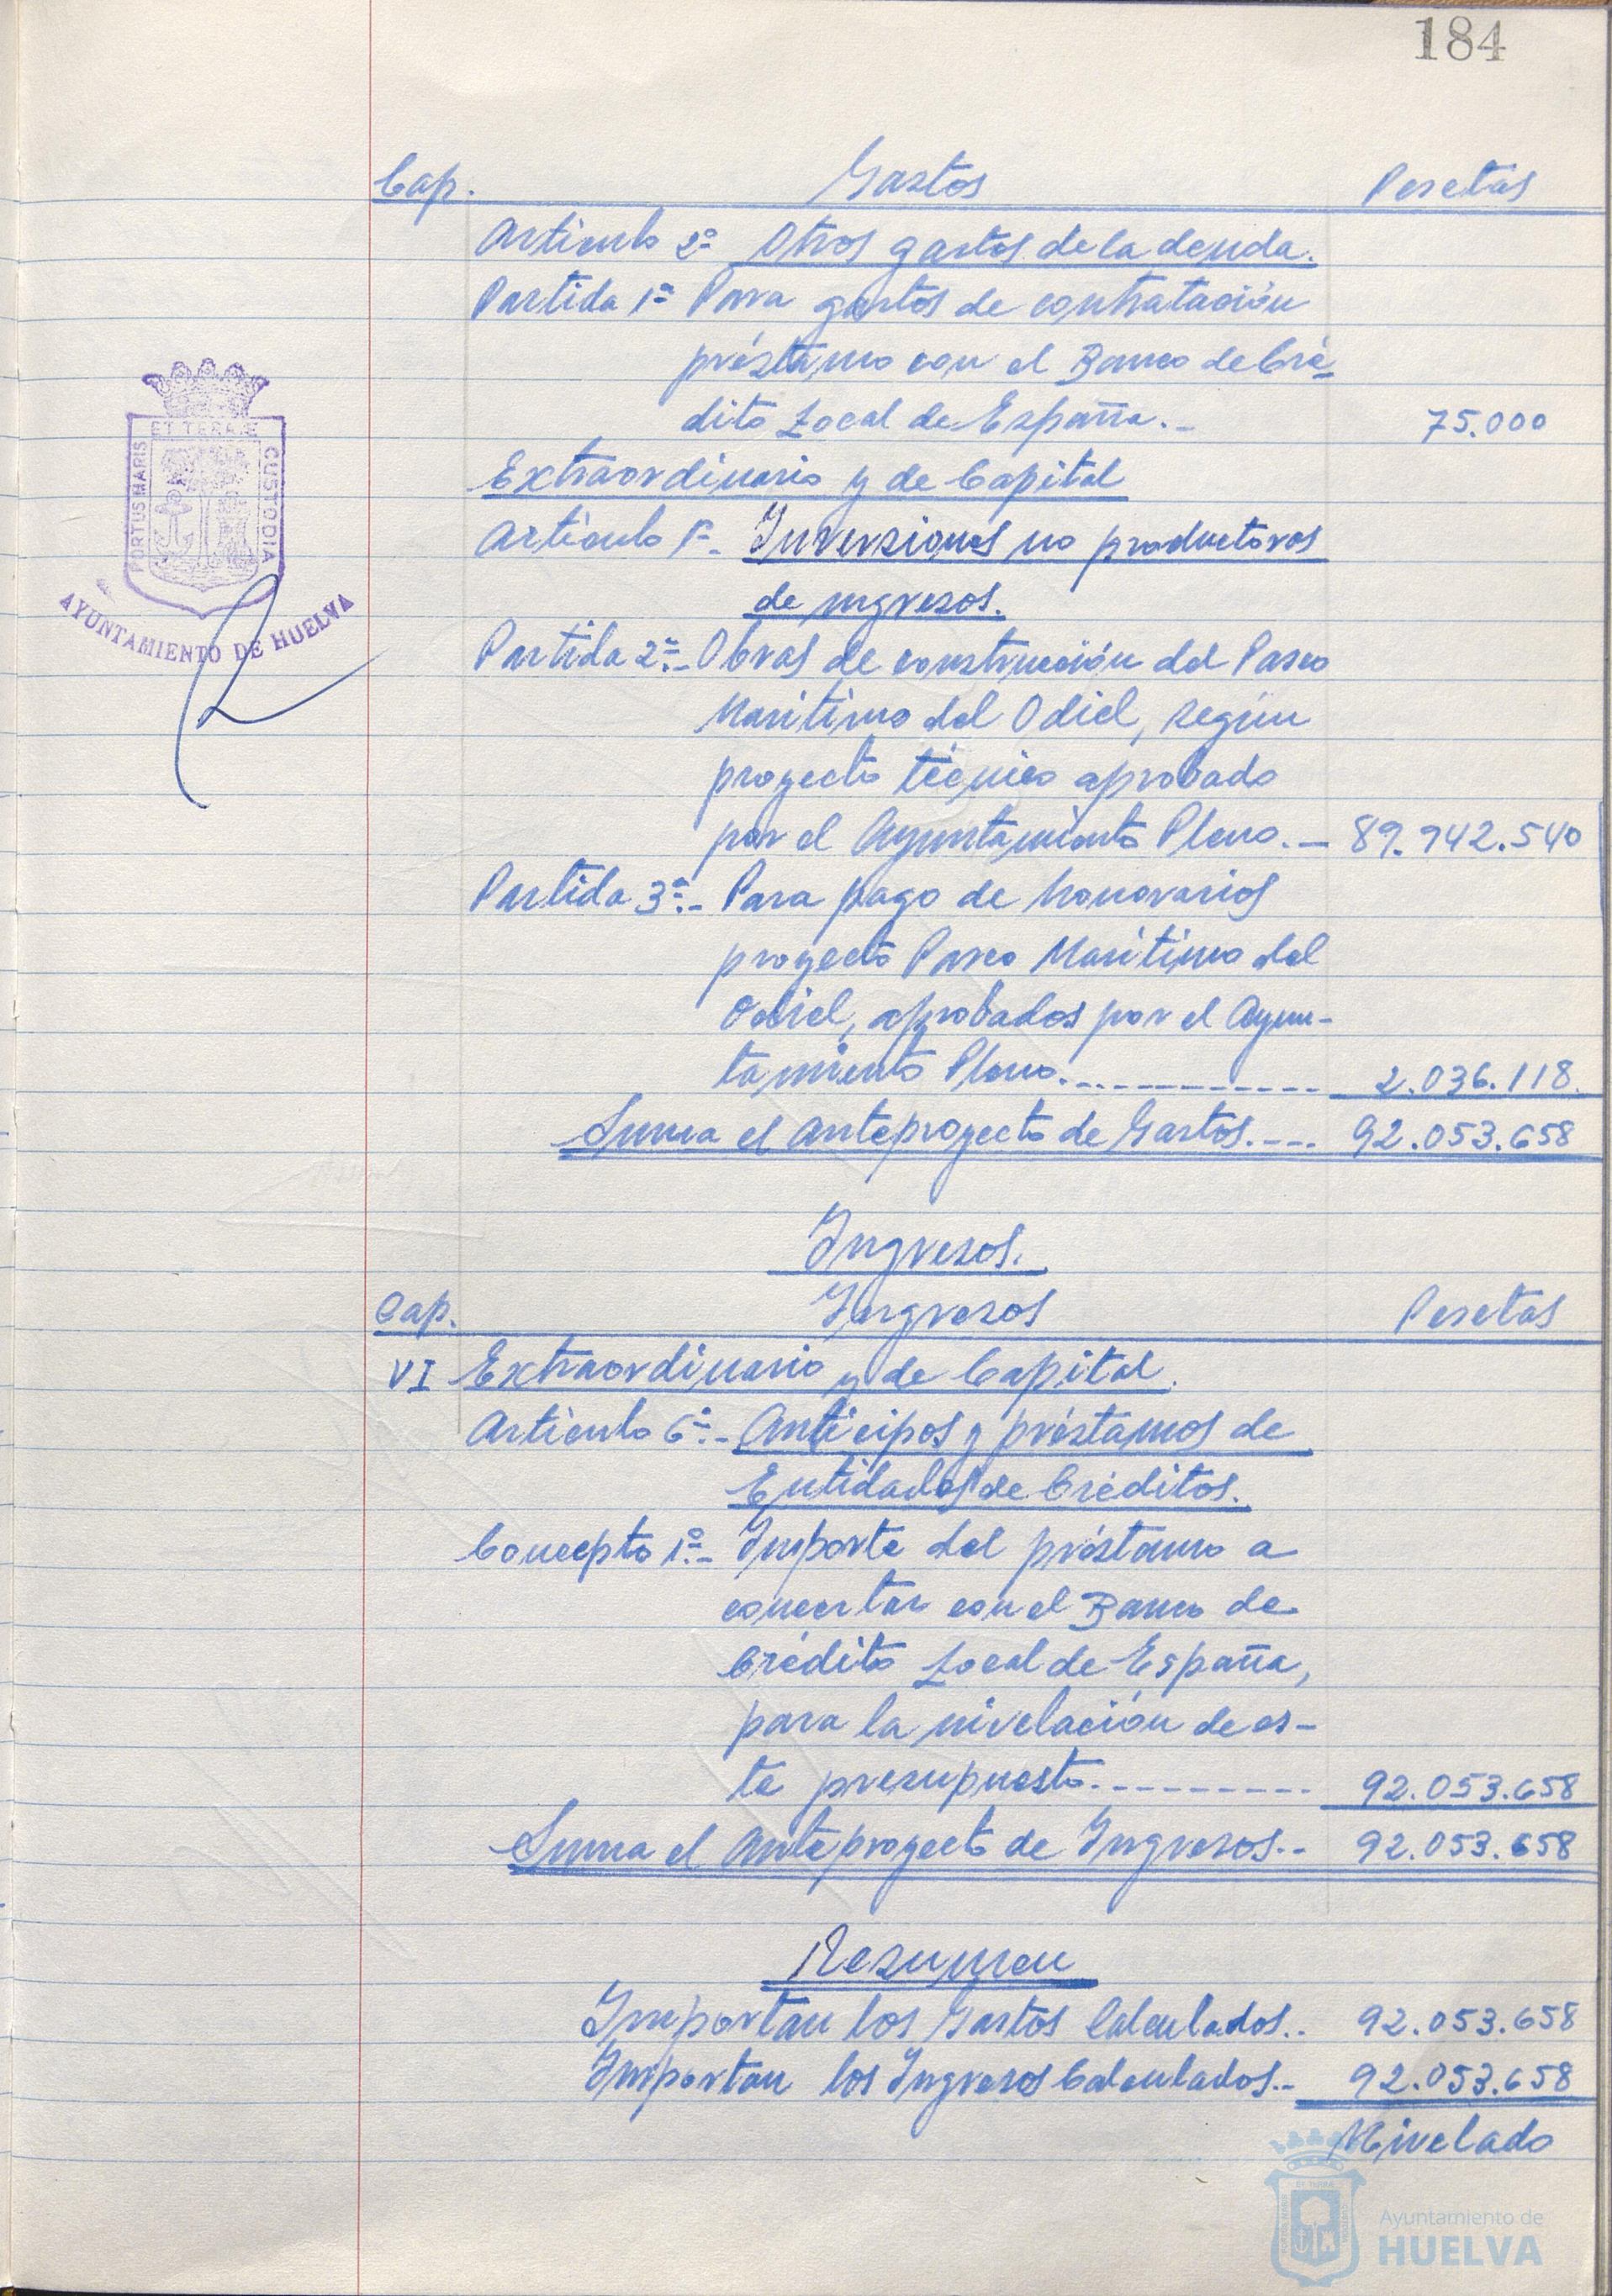 184
Cap. Gastos Pesetas
Artículo 2º Otros gastos de la deuda.
Partida 1ª Para gastos de contratación
préstamo con el Banco de Cré-
dito Local de España.- 75.000
Extraordinario y de Capital
Artículo 1º- Inversiones no productoras
de ingresos.
Partida 2ª.- Obras de construcción del Paseo
Marítimo del Odiel, según
proyecto técnico aprobado
por el Ayuntamiento Pleno.- 89.942.540
Partida 3ª.- Para pago de honorarios
proyecto Paseo Marítimo del
Odiel, aprobados por el Ayun-
tamiento Pleno.------------ 2.036.118.
Suma el Anteproyecto de Gastos.---- 92.053.658
Ingresos.
Cap. Ingresos Pesetas
VI Extraordinario y de Capital.
Artículo 6º.- Anticipos y préstamos de
Entidades de Créditos.
Concepto 1º.- Importe del préstamo a
concertar con el Banco de
Crédito Local de España,
para la nivelación de es-
te presupuesto.--------- 92.053.658
Suma el Anteproyecto de Ingresos.-- 92.053.658
Resumen
Importan los Gastos Calculados.. 92.053.658
Importan los Ingresos Calculados.- 92.053.658
Nivelado
PORTUS MARIS ET TERRAE CUSTODIA
AYUNTAMIENTO DE HUELVA
Ayuntamiento de
HUELVA